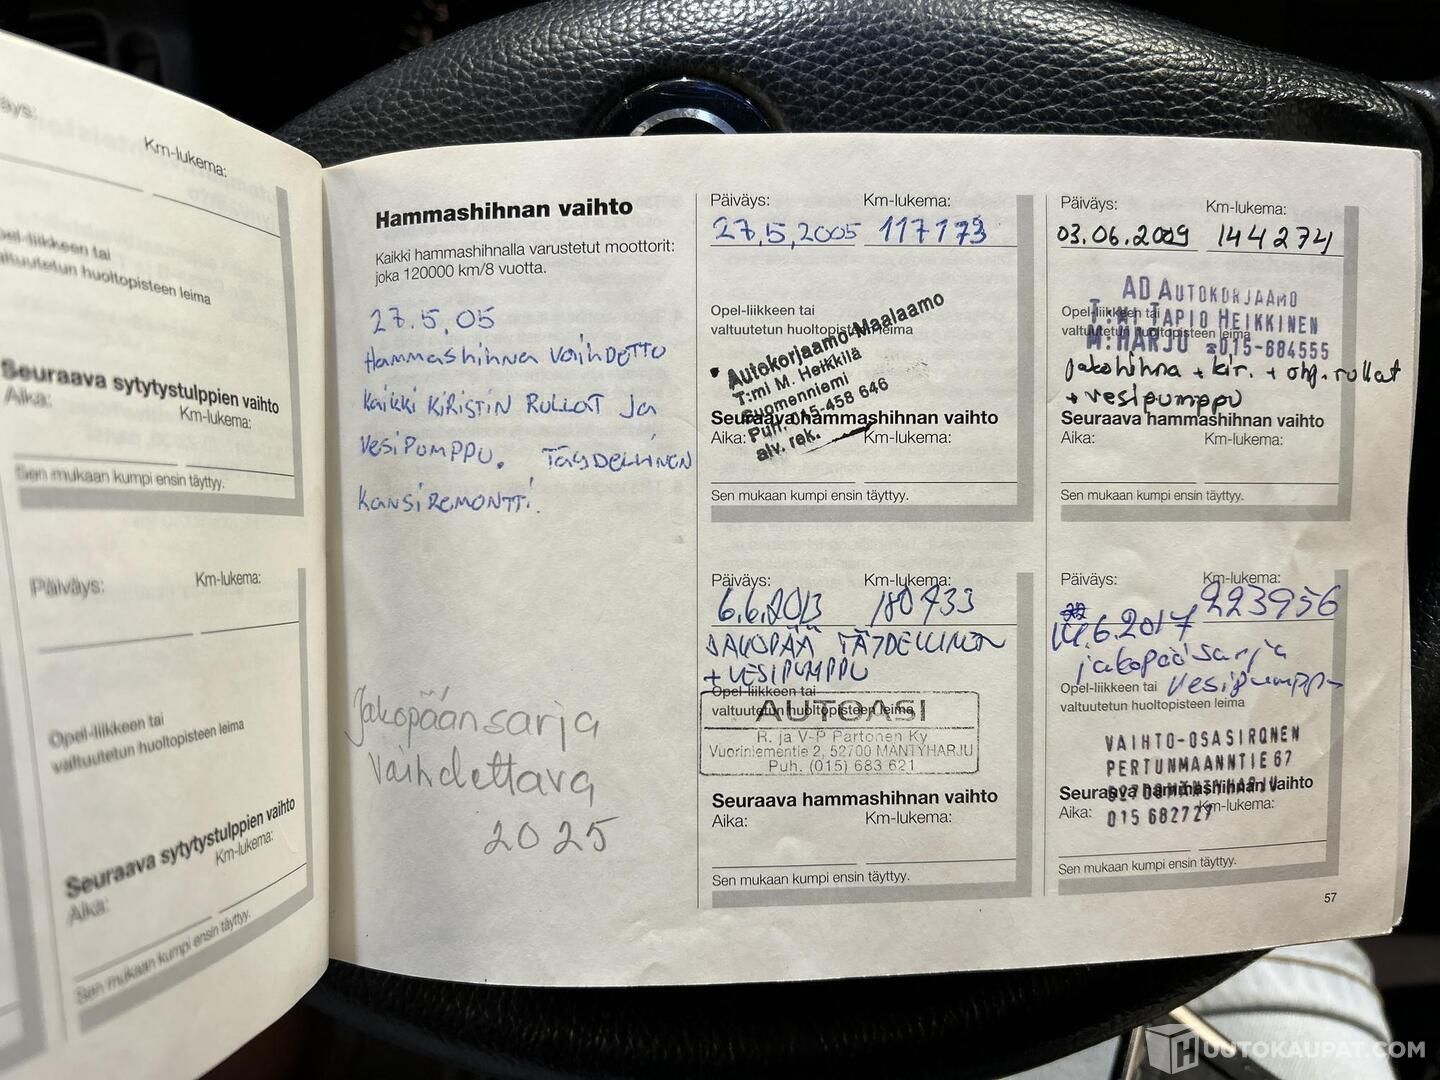 Km-lukema:
Seuraava sytytystulppien vaihto
Aika:
Km-lukema:
Sen mukaan kumpi ensin täyttyy.
Päiväys:
Km-lukema:
Opel-liikkeen tai
valtuutetun huoltopisteen leima
Seuraava sytytystulppien vaihto
Aika:
Km-lukema:
Sen mukaan kumpi ensin täyttyy.
Hammashihnan vaihto
Kaikki hammashihnalla varustetut moottorit:
joka 120000 km/8 vuotta.
27.5.05
Hammashihna vaihdettu
kaikki kiristin rullat ja
vesipumppu. Täydellinen
kansiremontti.
Jakopäänsarja
vaihdettava
2025
Päiväys:
Km-lukema:
27.5.2005
117173
Opel-liikkeen tai
valtuutetun huoltopisteen leima
Autokorjaamo-Maalaamo
T:mi M. Heikkilä
Suomenniemi
Puh. 015-458 646
alv. rek.
Seuraava hammashihnan vaihto
Aika:
Km-lukema:
Sen mukaan kumpi ensin täyttyy.
Päiväys:
Km-lukema:
03.06.2009
144274
AD AUTOKORJAAMO
Opel-liikkeen tai
T:mi TAPIO HEIKKINEN
valtuutetun huoltopisteen leima
M:HARJU 015-684555
jakohihna + kir. + ohj.rullat
+ vesipumppu
Seuraava hammashihnan vaihto
Aika:
Km-lukema:
Sen mukaan kumpi ensin täyttyy.
Päiväys:
Km-lukema:
6.6.2013
180433
JAKOPÄÄ TÄYDELLINEN
+ VESIPUMPPU
Opel-liikkeen tai
valtuutetun huoltopisteen leima
AUTOASI
R. ja V-P Partonen Ky
Vuoriniementie 2, 52700 MÄNTYHARJU
Puh. (015) 683 621
Seuraava hammashihnan vaihto
Aika:
Km-lukema:
Sen mukaan kumpi ensin täyttyy.
Päiväys:
Km-lukema:
6.2017
223956
jakopääsarja
vesipumppu
Opel-liikkeen tai
valtuutetun huoltopisteen leima
VAIHTO-OSASIRONEN
PERTUNMAANNTIE 67
Seuraava hammashihnan vaihto
Aika:
Km-lukema:
015 682727
Sen mukaan kumpi ensin täyttyy.
57
HUUTOKAUPAT.COM